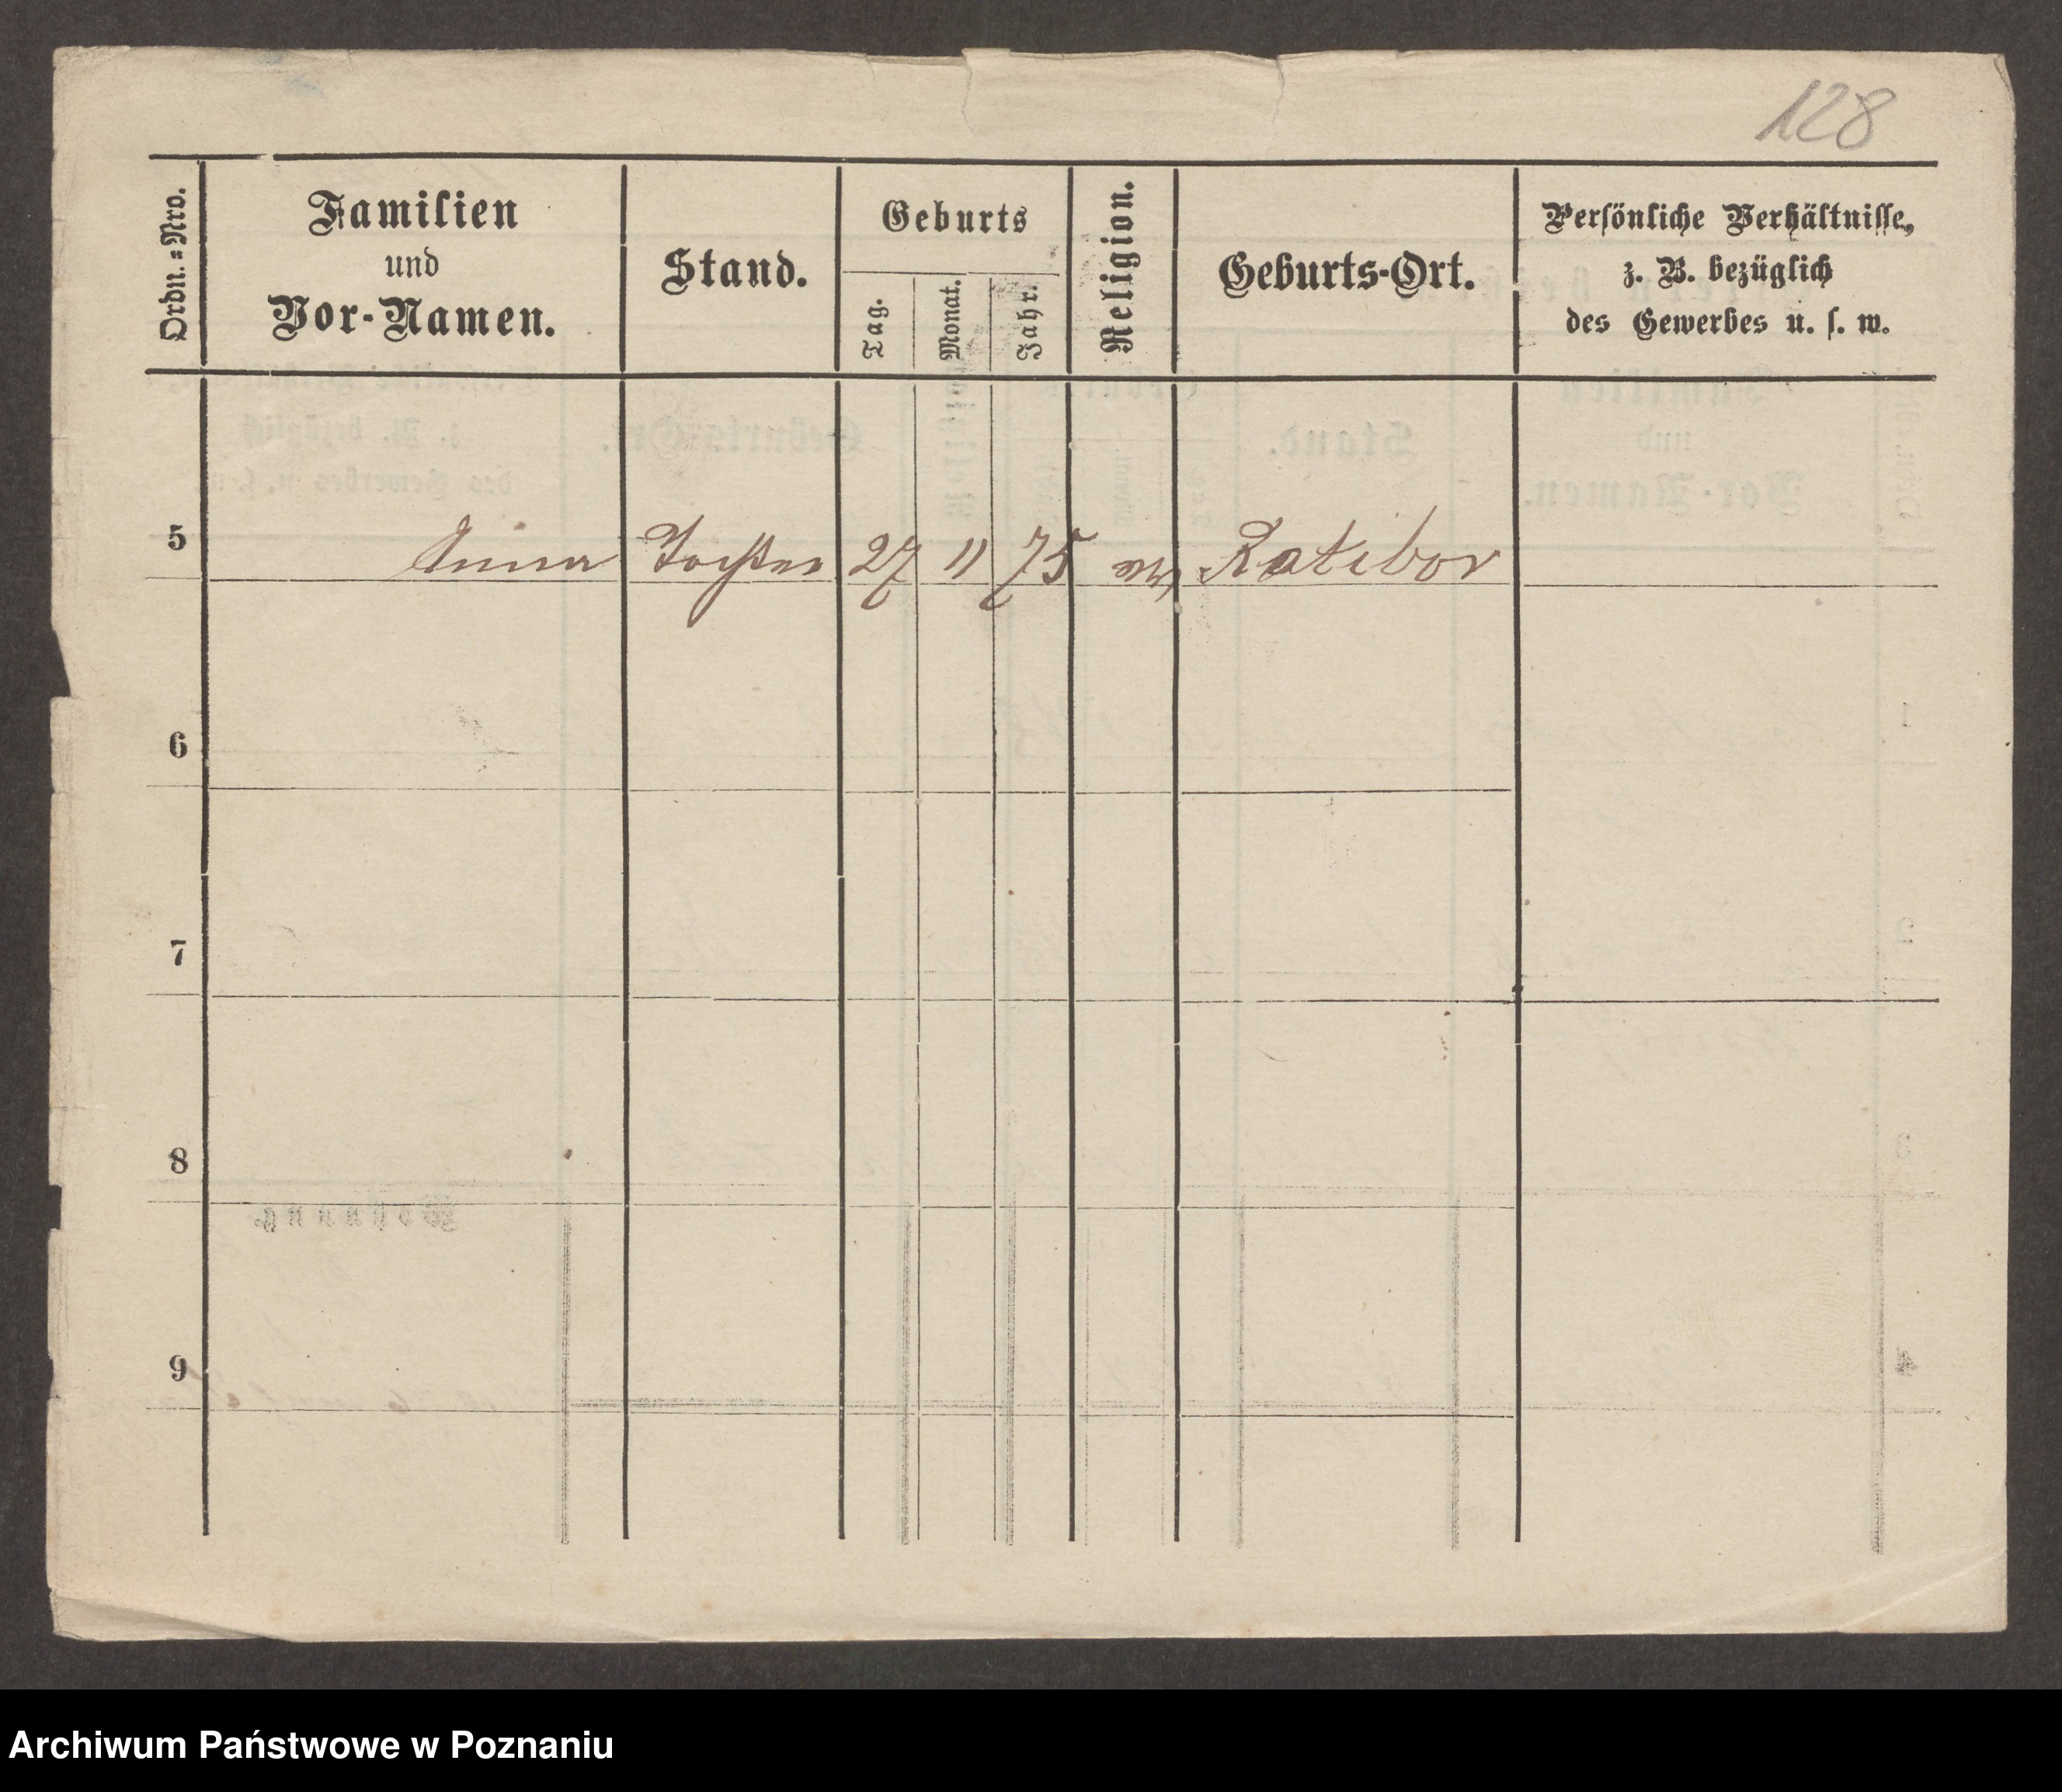 128
Ordn.=Nro.
Familien
und
Vor-Namen.
Stand.
Geburts
Tag.
Monat.
Jahr.
Religion.
Geburts-Ort.
Persönliche Verhältnisse,
z. B. bezüglich
des Gewerbes u. s. w.
5 Anna Tochter 27 11 75 Ratibor
6
7
8
9
Archiwum Państwowe w Poznaniu